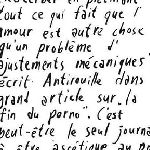 tout ce qui fait que l'
amour est autre chose
qu'un problème d'
ajustements mécaniques"
écrit Antirouille dans
grand article sur "la
fin du porno". C'est
peut-être le seul journa
à être ascétique au po